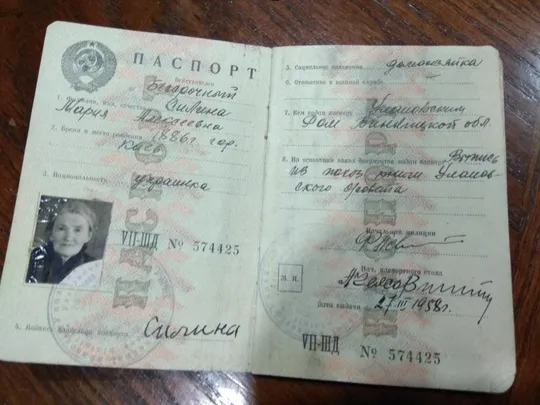 ПАСПОРТ
Действителен
Безсрочный
1. Фамилия, имя, отчество Силина
Мария Алексеевна
2. Время и место рождения 1886г. гор.
Киев
3. Национальность
украинка
VII-ШД № 574425
Силина
5. Социальное положение домохозяйка
6. Отношение к военной службе
7. Кем выдан паспорт Улановским
РОМ Винницкой обл
8. На основании каких документов выдан паспорт Выпись
из похоз. книги Уланов-
ского с/совета
Начальник милиции
М. П.
Нач. паспортного стола
Дата выдачи 27/III 1958г.
VII-ШД № 574425